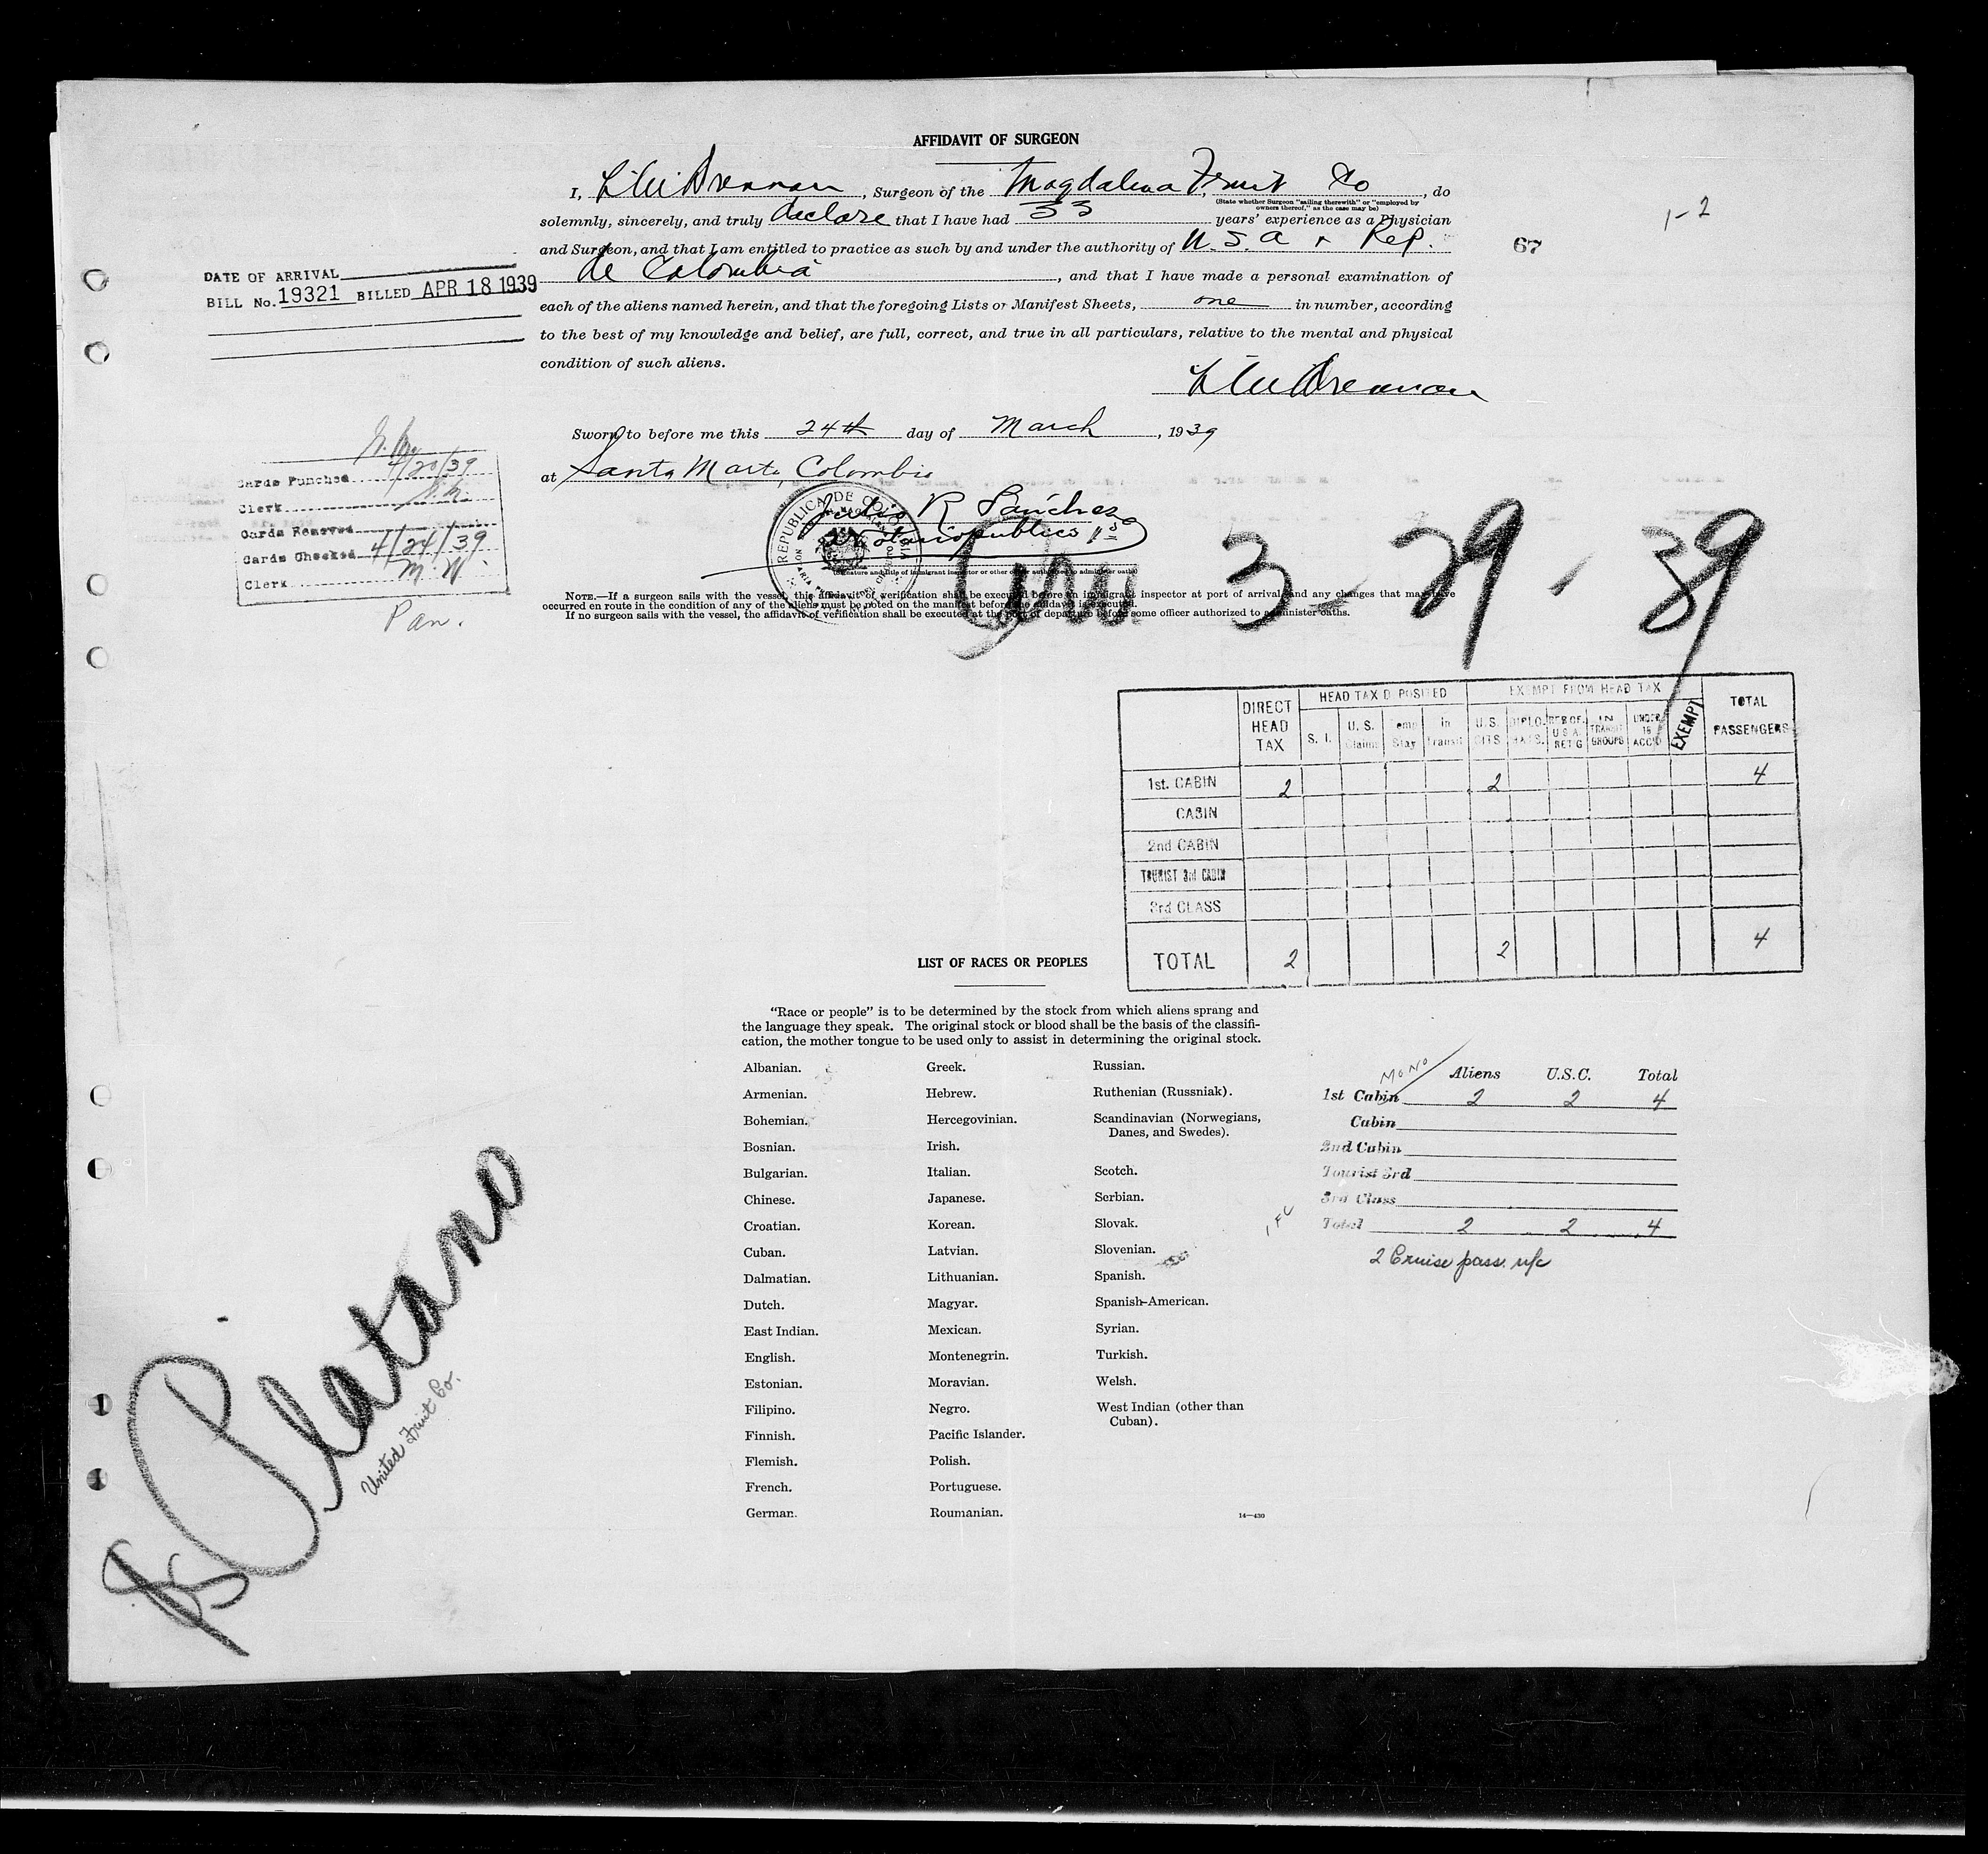 AFFIDAVIT OF SURGEON
I, Brennan, Surgeon of the Magdalena Fruit Co, do
(State whether Surgeon "sailing therewith" or "employed by
owners thereof," as the case may be)
solemnly, sincerely, and truly declare that I have had 33 years' experience as a Physician
and Surgeon, and that I am entitled to practice as such by and under the authority of U.S.A & Rep.
de Colombia, and that I have made a personal examination of
each of the aliens named herein, and that the foregoing Lists or Manifest Sheets, one in number, according
to the best of my knowledge and belief, are full, correct, and true in all particulars, relative to the mental and physical
condition of such aliens.
Brennan
1-2
67
DATE OF ARRIVAL
BILL No. 19321 BILLED APR 18 1939
Sworn to before me this 24th day of March, 1939
at Santa Marta, Colombia
Julio R Sanchez
Notario publico 1º
REPUBLICA DE COLOMBIA
(Signature and title of immigrant inspector or other officer authorized to administer oaths)
NOTE.—If a surgeon sails with the vessel, this affidavit of verification shall be executed before an immigrant inspector at port of arrival and any changes that may have
occurred en route in the condition of any of the aliens must be noted on the manifest before the affidavit is executed.
If no surgeon sails with the vessel, the affidavit of verification shall be executed at the port of departure before some officer authorized to administer oaths.
Cards Punched 4/20/39
Clerk
Cards Received
Cards Checked 4/24/39
Clerk M.W.
Pan.
3-29-39
DIRECT HEAD TAX HEAD TAX DEPOSITED EXEMPT FROM HEAD TAX TOTAL PASSENGERS
S. I. U. S. Claims Temp Stay In Transit U.S. CITS DIPLOMATS. RES OF. U S A. RET'G IN TRANSIT GROUPS UNDER 16 ACC'D EXEMPT
1st. CABIN 2 2 4
CABIN
2nd CABIN
TOURIST 3rd CABIN
3rd CLASS
TOTAL 2 2 4
LIST OF RACES OR PEOPLES
"Race or people" is to be determined by the stock from which aliens sprang and
the language they speak. The original stock or blood shall be the basis of the classifi-
cation, the mother tongue to be used only to assist in determining the original stock.
Albanian.
Armenian.
Bohemian.
Bosnian.
Bulgarian.
Chinese.
Croatian.
Cuban.
Dalmatian.
Dutch.
East Indian.
English.
Estonian.
Filipino.
Finnish.
Flemish.
French.
German.
Greek.
Hebrew.
Hercegovinian.
Irish.
Italian.
Japanese.
Korean.
Latvian.
Lithuanian.
Magyar.
Mexican.
Montenegrin.
Moravian.
Negro.
Pacific Islander.
Polish.
Portuguese.
Roumanian.
Russian.
Ruthenian (Russniak).
Scandinavian (Norwegians,
Danes, and Swedes).
Scotch.
Serbian.
Slovak.
Slovenian.
Spanish.
Spanish-American.
Syrian.
Turkish.
Welsh.
West Indian (other than
Cuban).
14—430
MONO
Aliens U.S.C. Total
1st Cabin 2 2 4
Cabin
2nd Cabin
Tourist 3rd
3rd Class
Total 2 2 4
2 Cruise pass. u/c
SS Platano
United Fruit Co.